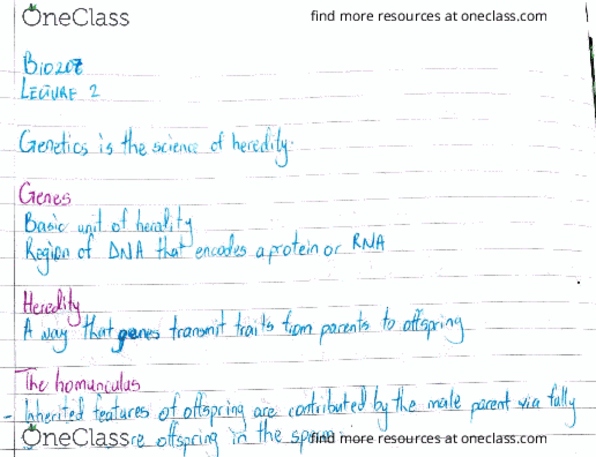 OneClass
find more resources at oneclass.com
BIO207
LECTURE 2
Genetics is the science of heredity.
Genes
Basic unit of herality
Region of DNA that encodes a protein or RNA
Heredity
A way that genes transmit traits from parents to offspring
The homunculus
- Inherited features of offspring are contributed by the male parent via fully
re offspring in the sperm
OneClass
find more resources at oneclass.com